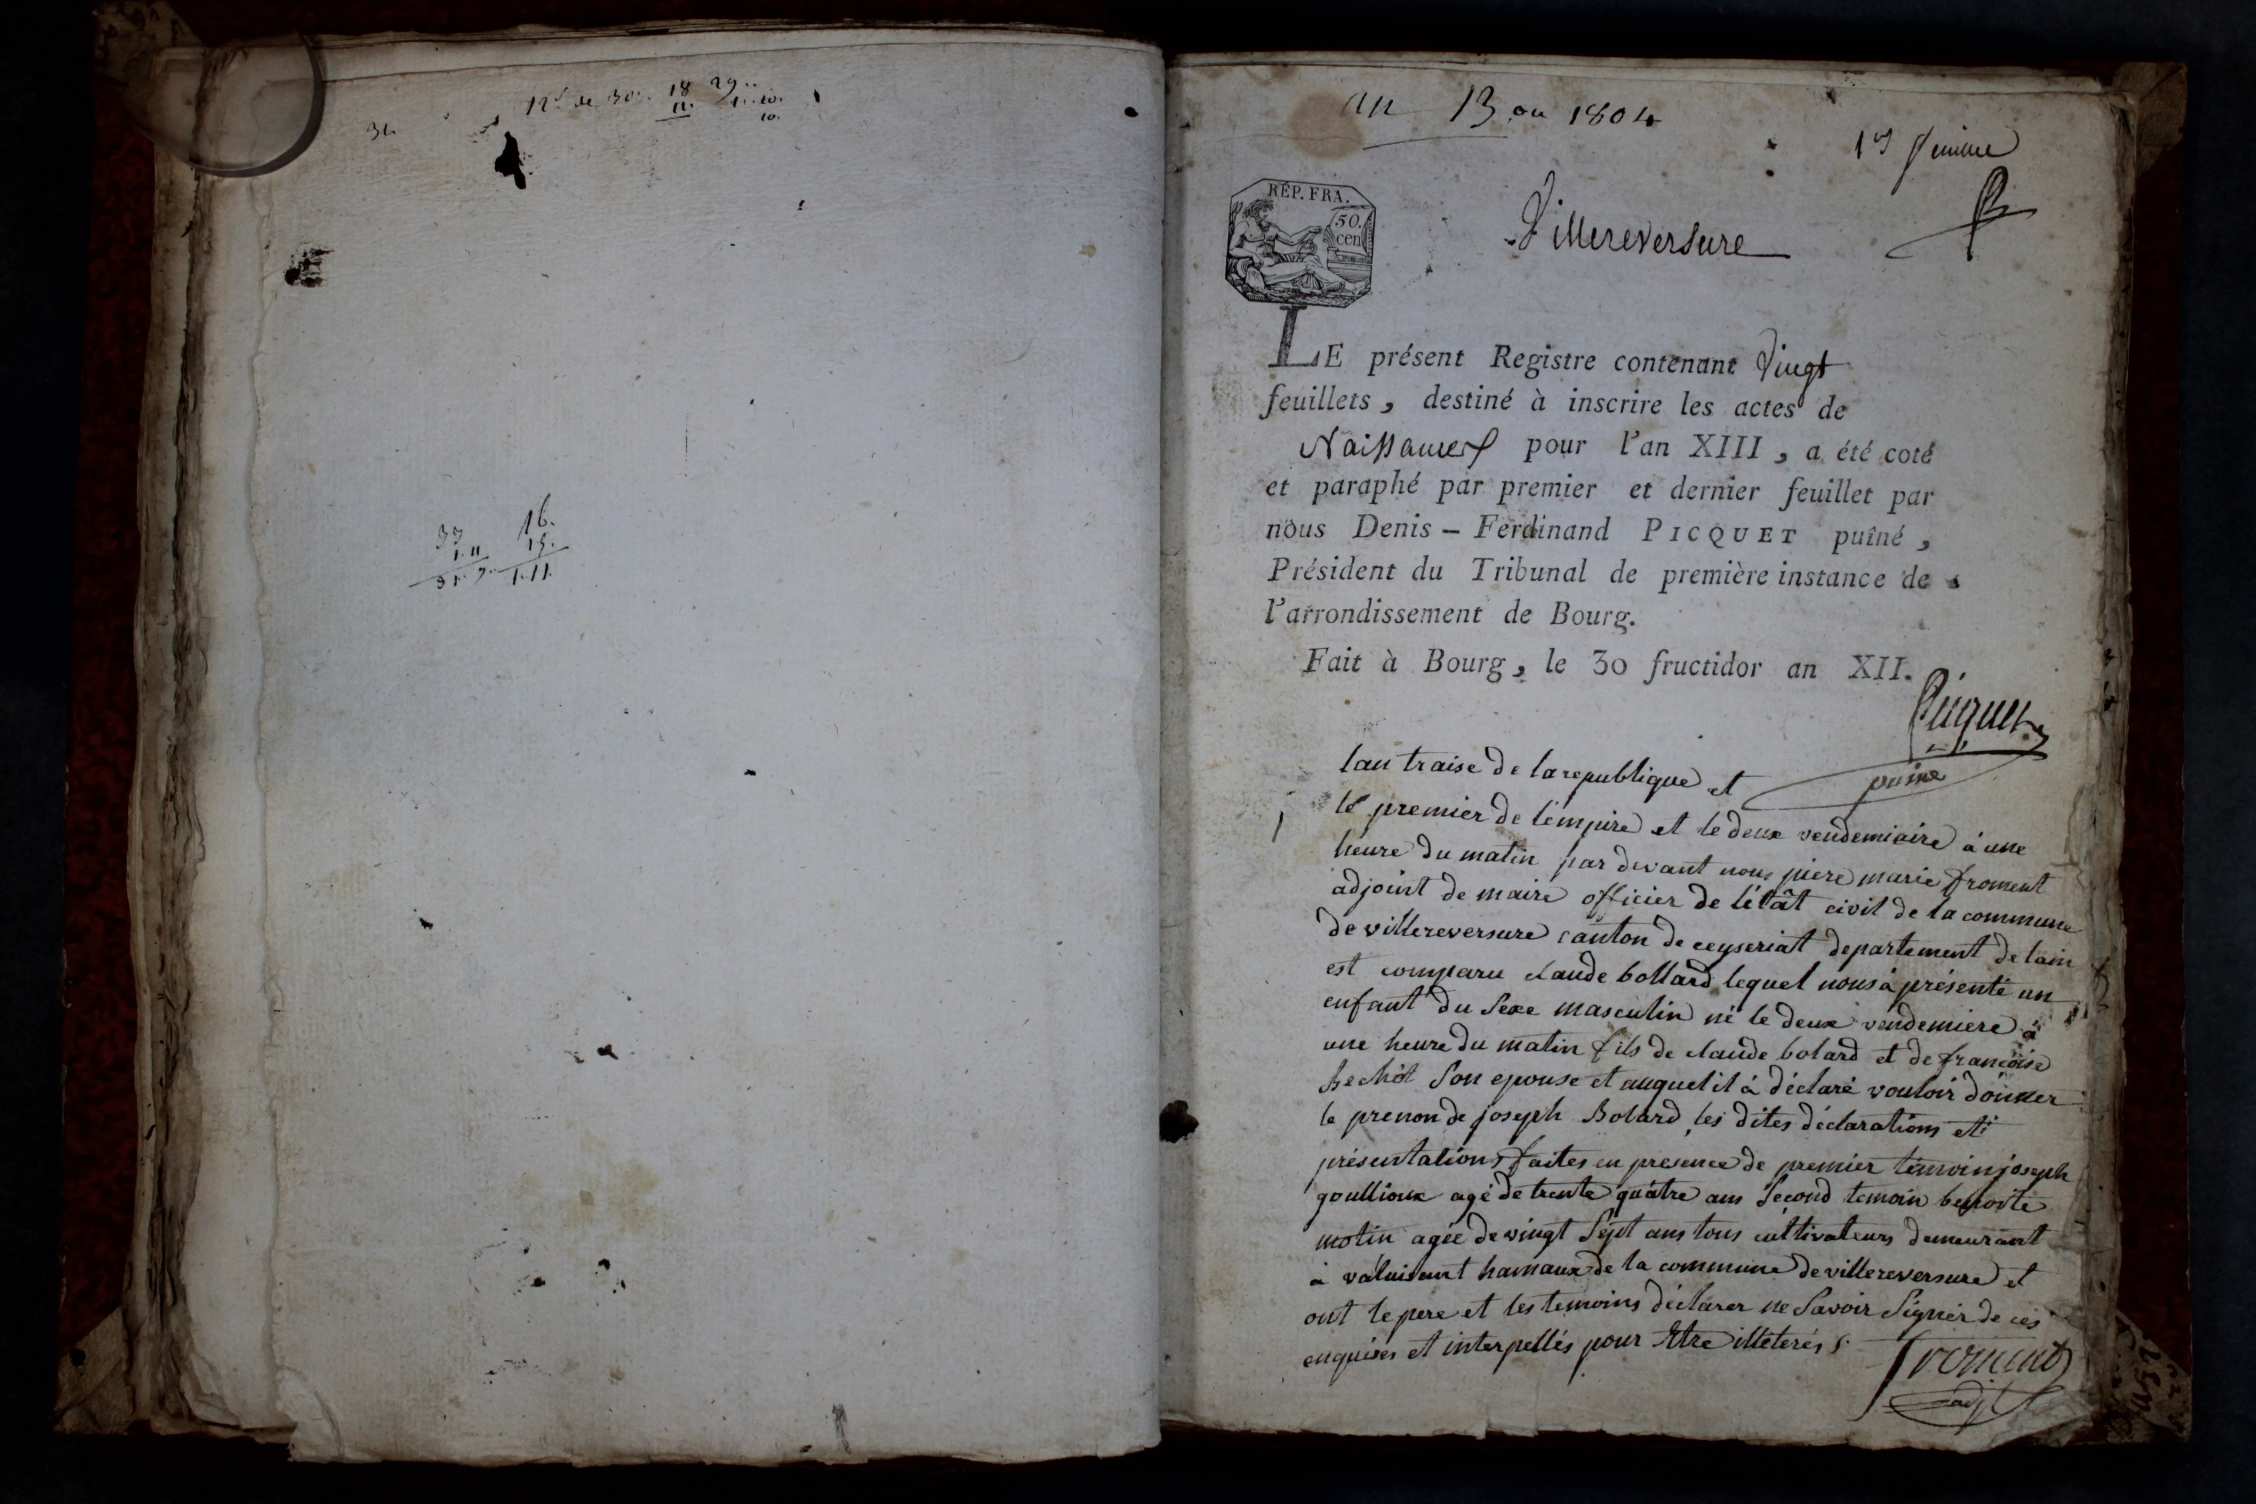 12 de 30. 18 29
11. 1.10.
10.
36
33 16.
1.11 15.
31.7. 1.11.
an 13 ou 1804
1er feuillet
RÉP. FRA.
50.
cen
Villereversure
LE présent Registre contenant Vingt
feuillets, destiné à inscrire les actes de
Naissances pour l'an XIII, a été coté
et paraphé par premier et dernier feuillet par
nous Denis-Ferdinand PICQUET puîné,
Président du Tribunal de première instance de
l'arrondissement de Bourg.
Fait à Bourg, le 30 fructidor an XII.
Picquet
puiné
lan traise de la republique et
1 le premier de l'empire et le deux vendemiaire à une
heure du matin par devant nous piere marie froment
adjoint de maire officier de l'étât civil de la commune
de villereversure canton de ceyseriat departement de lain
est comparu claude bollard lequel nous à présenté un
enfant du sexe masculin né le deux vendemiere à
une heure du matin fils de claude bolard et de françoise
son epouse et auquel il à déclaré vouloir donner
le prenon de joseph Bolard, les dites déclarations et
présentations faites en presence de premier témoin joseph
goullioux agé de trente quatre ans second temoin benoite
motin agée de vingt sept ans tous cultivateurs demeurant
à hamaux de la commune de villereversure et
ont le pere et les temoins déclarer ne savoir signer de ces
enquises et interpellés pour être illeterés
froment
adj